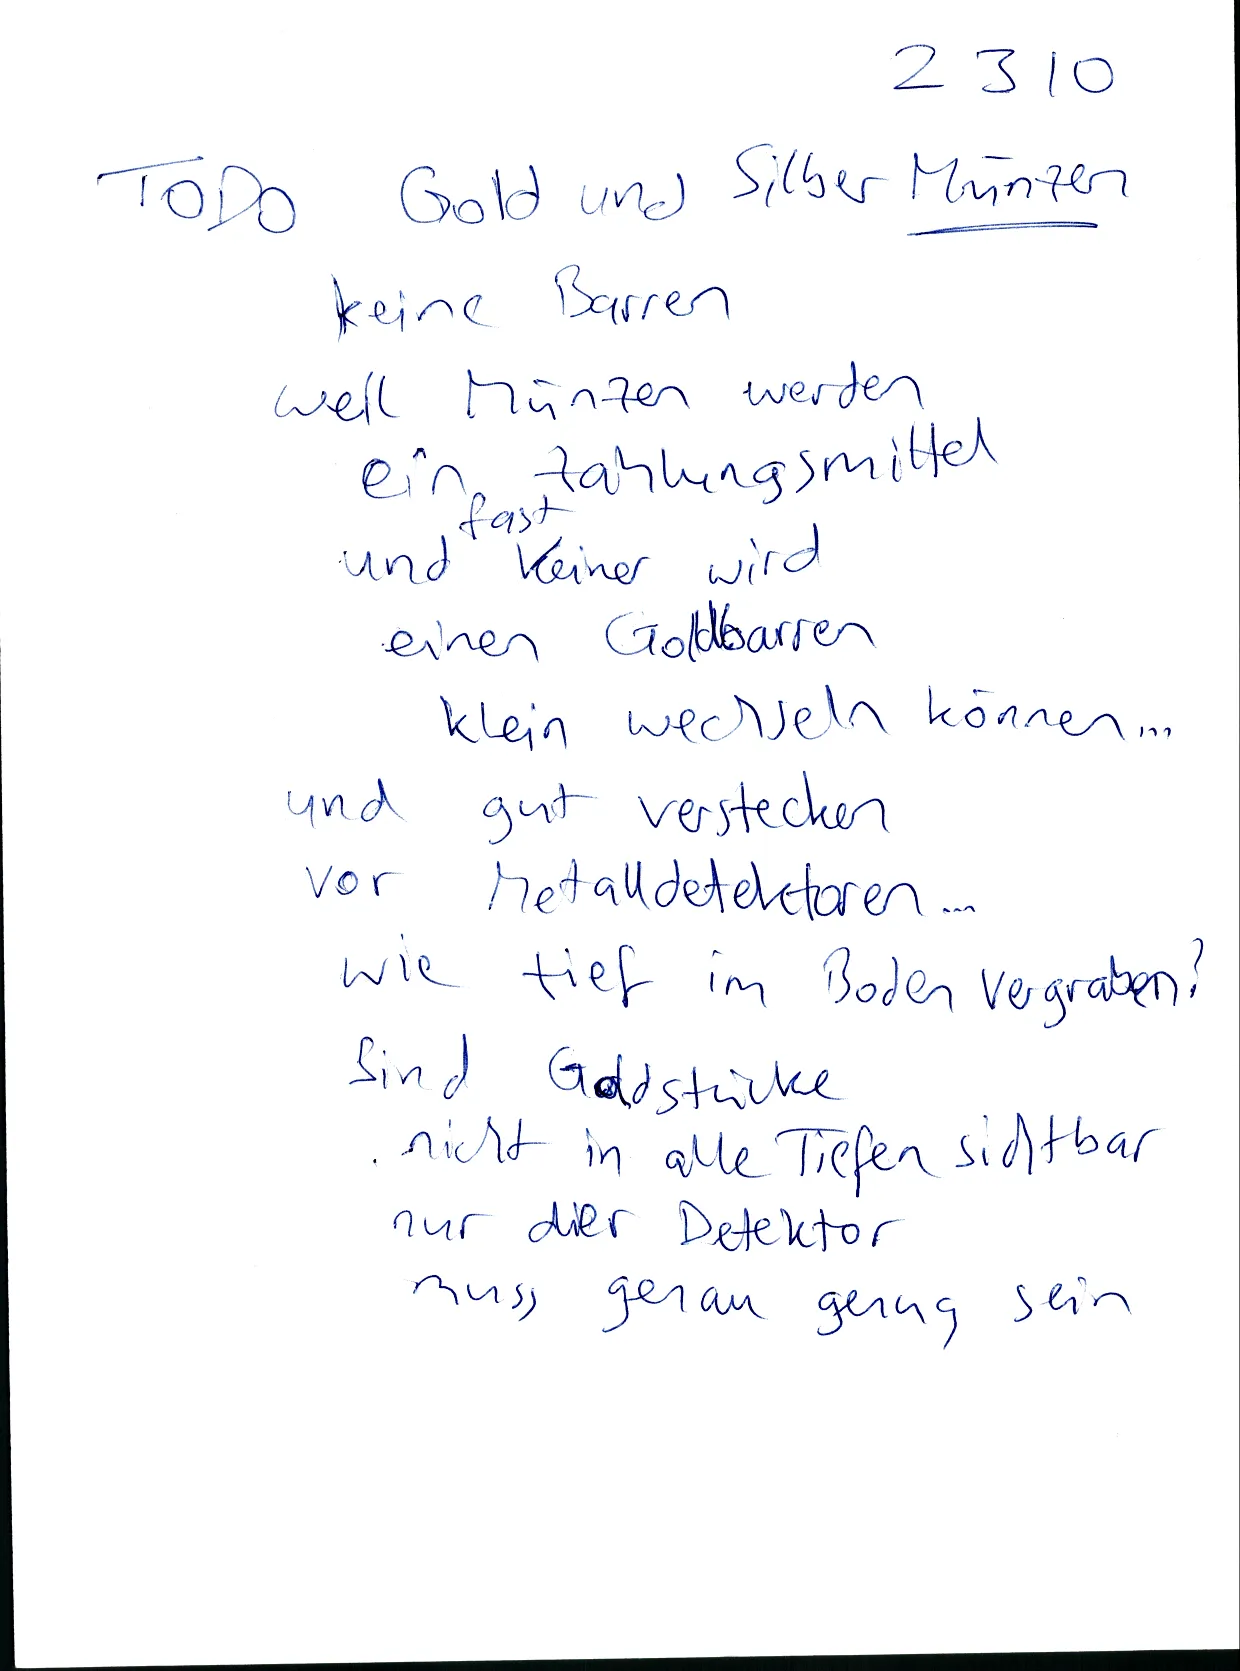 2310
TODO Gold und Silber Münzen
keine Barren
weil Münzen werden
ein Zahlungsmittel
fast
und keiner wird
einen Goldbarren
klein wechseln können...
und gut verstecken
vor Metalldetektoren...
wie tief im Boden vergraben?
Sind Goldstücke
nicht in alle Tiefen sichtbar
nur der Detektor
muss genau genug sein